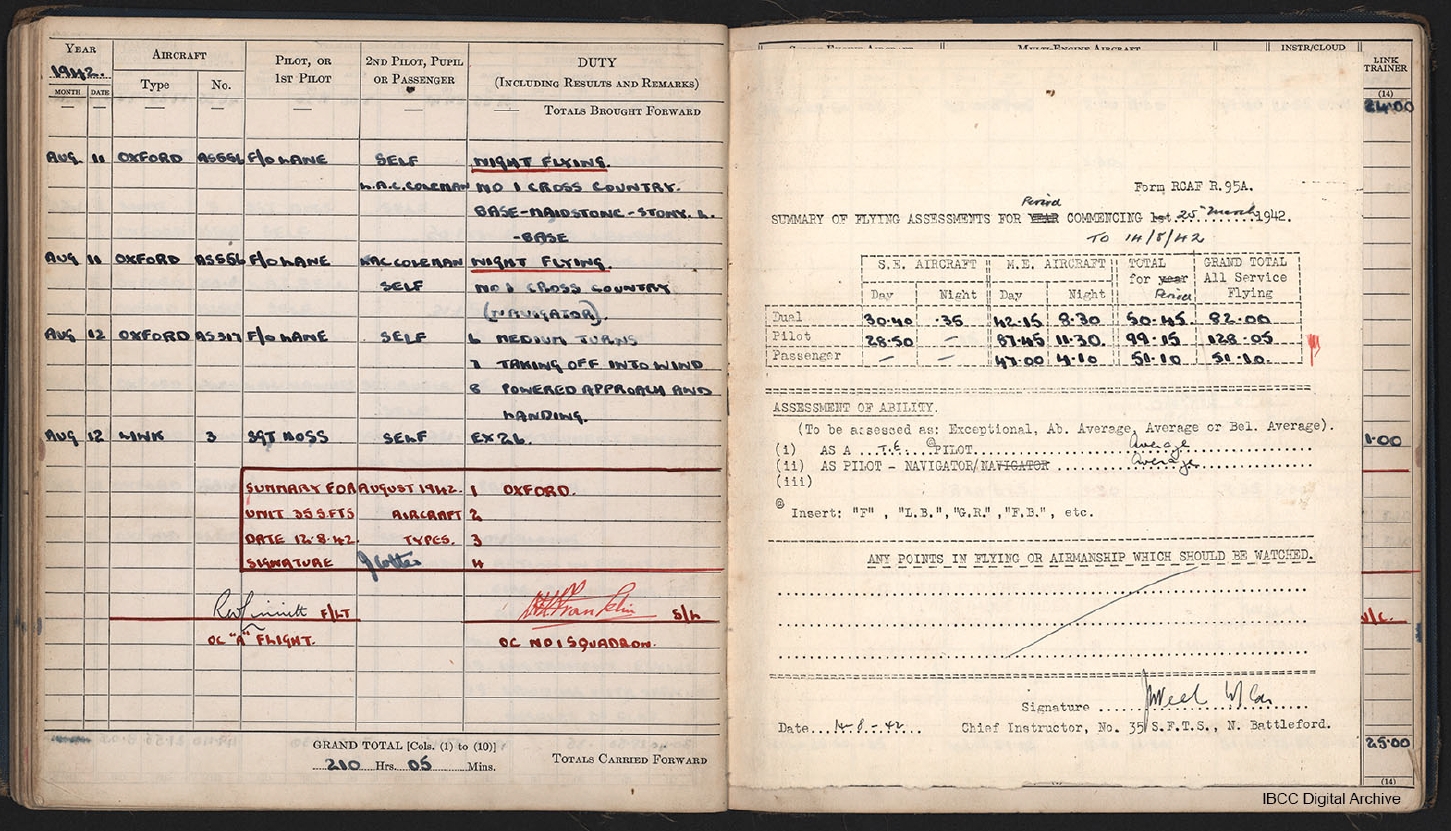 YEAR
1942.
AIRCRAFT
Type No.
PILOT, OR
1ST PILOT
2ND PILOT, PUPIL
OR PASSENGER
DUTY
(INCLUDING RESULTS AND REMARKS)
MONTH DATE
TOTALS BROUGHT FORWARD
AUG 11 OXFORD F/O LANE SELF NIGHT FLYING.
L.A.C. COLEMAN NO 1 CROSS COUNTRY.
BASE-MAIDSTONE-STONY. L.
-BASE
AUG 11 OXFORD F/O LANE LAC COLEMAN NIGHT FLYING.
SELF NO 1 CROSS COUNTRY
(NAVIGATOR).
AUG 12 OXFORD AS317 F/O LANE SELF 6 MEDIUM TURNS
7 TAKING OFF INTO WIND
8 POWERED APPROACH AND
LANDING.
AUG 12 LINK 3 SGT MOSS SELF EX 26.
SUMMARY FOR AUGUST 1942. 1 OXFORD.
UNIT 35 S.F.T.S AIRCRAFT 2
DATE 12.8.42. TYPES. 3
SIGNATURE 4
F/LT
OC "A" FLIGHT.
Franklin S/L
OC NO 1 SQUADRON.
GRAND TOTAL [Cols. (1) to (10)]
210 Hrs. 05 Mins.
TOTALS CARRIED FORWARD
MULTI-ENGINE AIRCRAFT
INSTR/CLOUD
LINK
TRAINER
(14)
24.00
Form RCAF R.95A.
Period
SUMMARY OF FLYING ASSESSMENTS FOR YEAR COMMENCING 1st 25 March 1942.
TO 14/8/42
S.E. AIRCRAFT M.E. AIRCRAFT TOTAL GRAND TOTAL
for year All Service
Period Flying
Day Night Day Night
Dual 30.40 .35 42.15 8.30 50.45 82.00
Pilot 28.50 — 87.45 11.30 99.15 128.05
Passenger — — 47.00 4.10 51.10 51.10
ASSESSMENT OF ABILITY.
(To be assessed as: Exceptional, Ab. Average, Average or Bel. Average).
(i) AS A ...T.E...@PILOT Average
(ii) AS PILOT - NAVIGATOR/NAVIGATOR Average
(iii)
@ Insert: "F" , "L.B.","G.R.","F.B.", etc.
1.00
ANY POINTS IN FLYING OR AIRMANSHIP WHICH SHOULD BE WATCHED.
Signature
Date...14-8-42... Chief Instructor, No. 35 S.F.T.S., N. Battleford.
25.00
(14)
IBCC Digital Archive